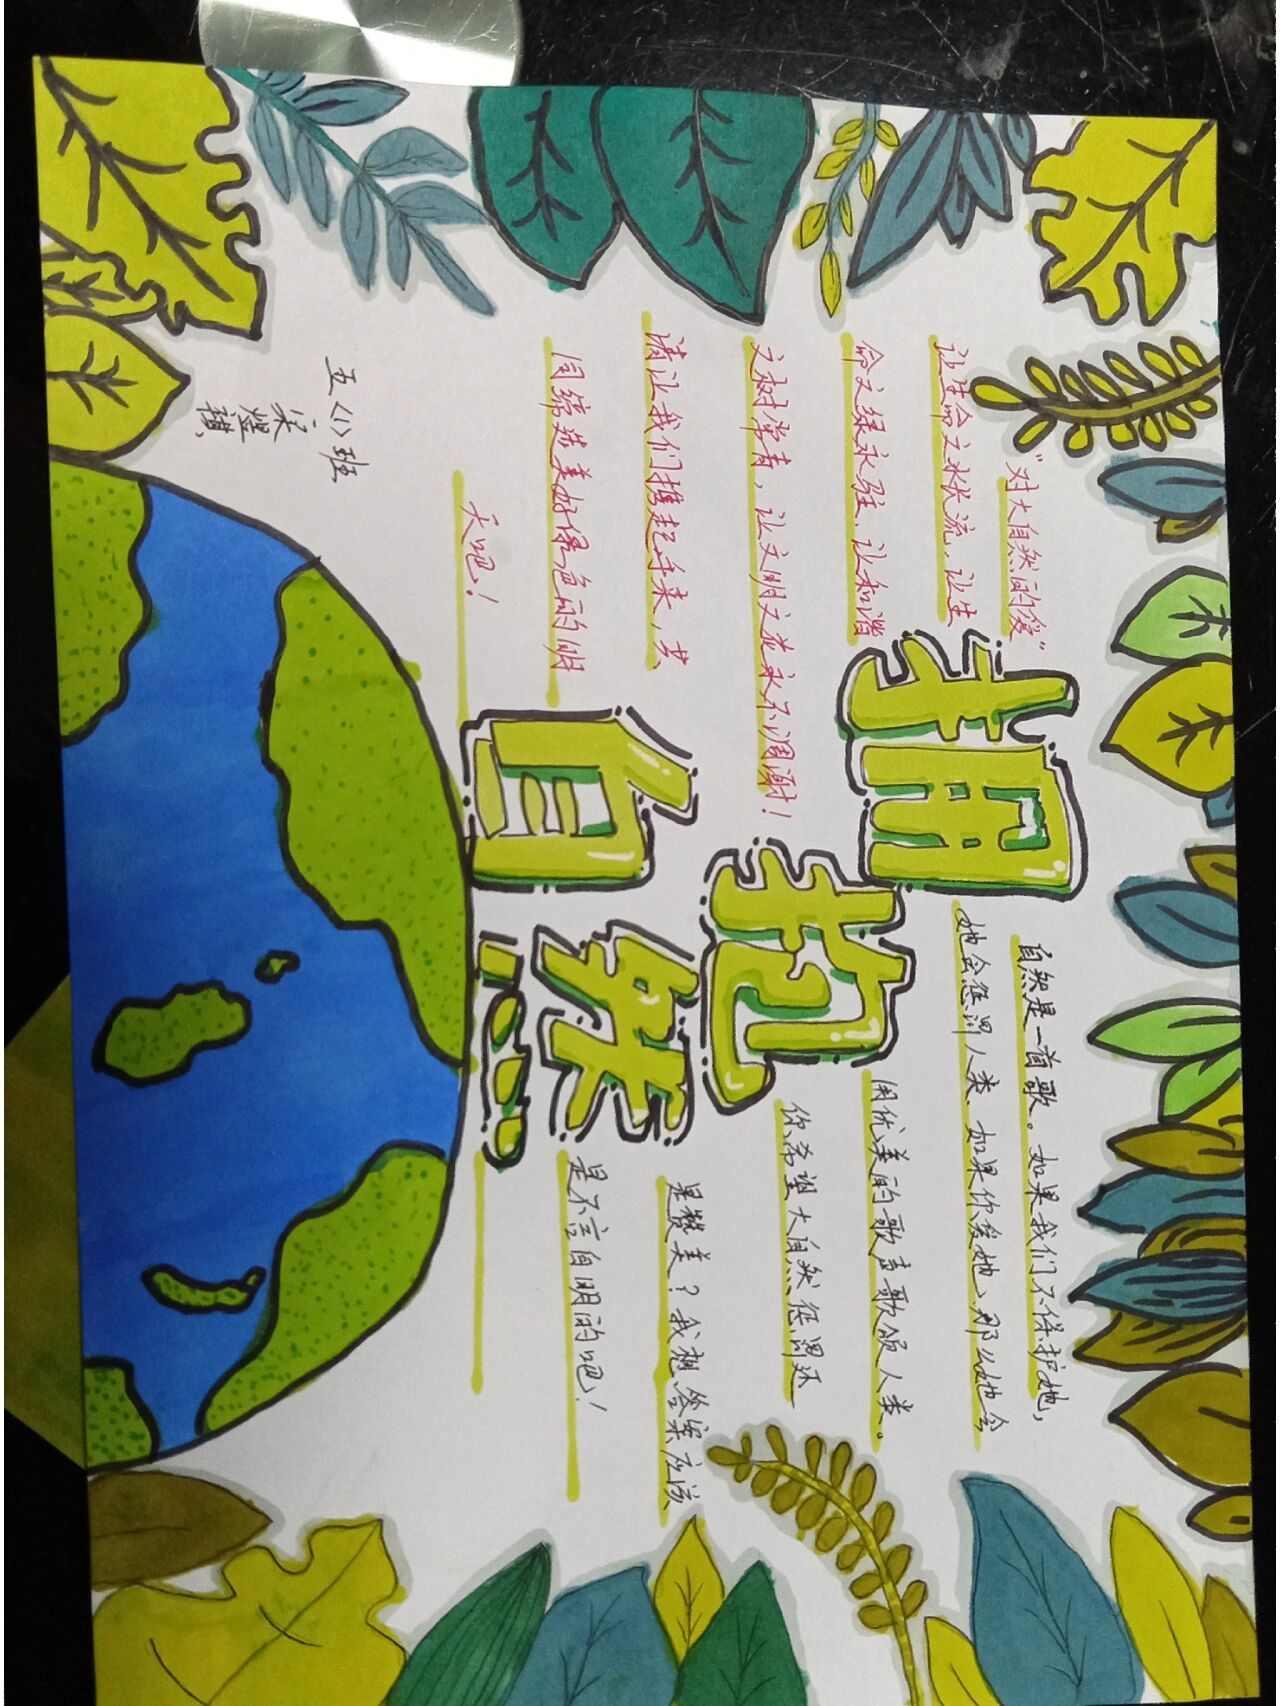 拥抱
自然
"对大自然的爱"
让生命之水长流,让生
命之绿永驻,让和谐
之树常青,让文明之花永不凋谢!
请让我们携起手来,共
同缔造美好绿色的明
天吧!
自然是一首歌。如果我们不保护她,
她会惩罚人类.如果你爱她,那么她会
用优美的歌声歌颂人类。
你希望大自然惩罚还
是赞美?我想答案应该
是不言自明的吧!
五<1>班